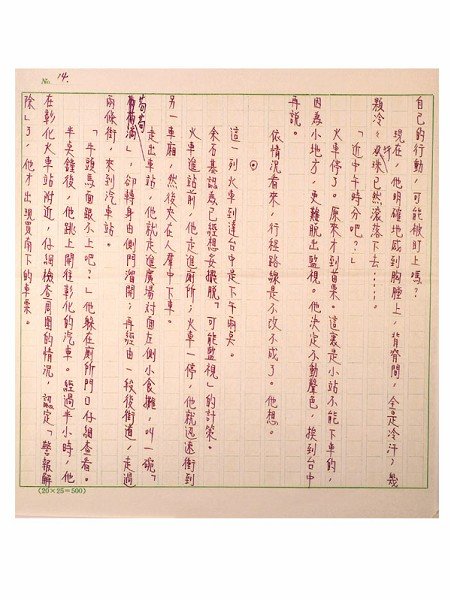 No. 14.
自己的行動，可能被盯上嗎？
現在，他明確地感到胸膛上，背脊間，全是冷汗；幾
顆冷汗珠已然滾落下去……。
「近中午時分吧？」
火車停了。原來才到苗栗。這裏是小站不能下車的，
因為小地方，更難脫出監視。他決定不動聲色，挨到台中
再說。
依情況看來，行程路線是不改不成了。他想。
⊙
這一列火車到達台中是下午兩點。
余石基認為已經想妥擺脫「可能監視」的計策。
火車進站前，他走進廁所；火車一停，他就迅速衝到
另一車廂，然後夾在人羣中下車。
走出車站，他就走進廣場對面左側小食攤，叫一碗「
苟苟滴」，卻轉身由側門溜開；再經由一段後街道，走過
兩條街，來到汽車站。
「牛頭馬面跟不上吧？」他躲在廁所門口仔細查看。
半支鐘後，他跳上開往彰化的汽車。經過半小時，他
在彰化火車站附近，仔細檢查周圍的情況，認定「警報解
除」了，他才出現買南下的車票。
(20×25=500)